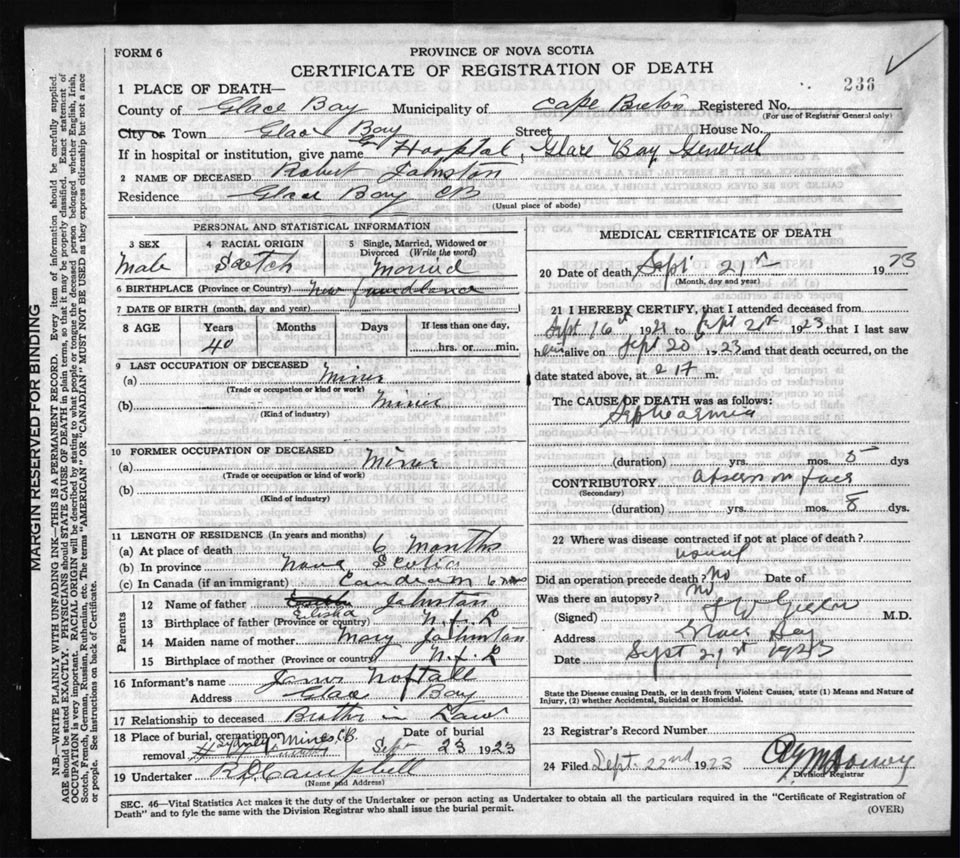 FORM 6
PROVINCE OF NOVA SCOTIA
CERTIFICATE OF REGISTRATION OF DEATH
236
1 PLACE OF DEATH—
County of Glace Bay Municipality of Cape Breton Registered No.
(For use of Registrar General only)
City or Town Glace Bay Street House No.
If in hospital or institution, give name Hospital, Glace Bay General
2 NAME OF DECEASED Robert Johnston
Residence Glace Bay CB
(Usual place of abode)
PERSONAL AND STATISTICAL INFORMATION
3 SEX 4 RACIAL ORIGIN 5 Single, Married, Widowed or Divorced (Write the word)
Male Scotch Married
6 BIRTHPLACE (Province or Country) New foundland
7 DATE OF BIRTH (month, day and year)
8 AGE Years Months Days If less than one day,
40 hrs. or min.
9 LAST OCCUPATION OF DECEASED
(a) Miner
(Trade or occupation or kind or work)
(b) Miner
(Kind of industry)
10 FORMER OCCUPATION OF DECEASED
(a) Miner
(Trade or occupation or kind of work)
(b)
(Kind of industry)
11 LENGTH OF RESIDENCE (In years and months)
(a) At place of death 6 Months
(b) In province Nova Scotia
(c) In Canada (if an immigrant) 6 mos
Parents
12 Name of father Elisha Johnston
13 Birthplace of father (Province or country) N.F.L
14 Maiden name of mother Mary Johnston
15 Birthplace of mother (Province or country) N.F.L
16 Informant's name James Noftall
Address Glace Bay
17 Relationship to deceased Brother in Law
18 Place of burial, cremation or removal Sydney Mines C.B. Date of burial Sept 23 1923
19 Undertaker
(Name and Address)
MEDICAL CERTIFICATE OF DEATH
20 Date of death Sept 21st 1923
(Month, day and year)
21 I HEREBY CERTIFY, that I attended deceased from
Sept 16th 1921 to Sept 21st 1923 that I last saw
him alive on Sept 20th 1923 and that death occurred, on the
date stated above, at m.
The CAUSE OF DEATH was as follows:
Septicaemia
(duration) yrs. mos. 5 dys
CONTRIBUTORY Abscess on face
(Secondary)
(duration) yrs. mos. 8 dys.
22 Where was disease contracted if not at place of death?
Did an operation precede death? No Date of
Was there an autopsy? No
(Signed) M.D.
Address Glace Bay
Date Sept 21st 1923
State the Disease causing Death, or in death from Violent Causes, state (1) Means and Nature of
Injury, (2) whether Accidental, Suicidal or Homicidal.
23 Registrar's Record Number
24 Filed Sept. 22nd 1923
Division Registrar
SEC. 46—Vital Statistics Act makes it the duty of the Undertaker or person acting as Undertaker to obtain all the particulars required in the "Certificate of Registration of
Death" and to fyle the same with the Division Registrar who shall issue the burial permit.
(OVER)
MARGIN RESERVED FOR BINDING
N.B.—WRITE PLAINLY WITH UNFADING INK—THIS IS A PERMANENT RECORD. Every item of information should be carefully supplied.
AGE should be stated EXACTLY. PHYSICIANS should STATE CAUSE OF DEATH in plain terms, so that it may be properly classified. Exact statement of
OCCUPATION is very important. RACIAL ORIGIN will be described by stating to what people or tongue the deceased person belonged whether English, Irish,
Scotch, French, German, Russian, Ruthenian, etc. The terms "AMERICAN" OR "CANADIAN" MUST NOT BE USED as they express citizenship but not a race
or people. See instructions on back of Certificate.